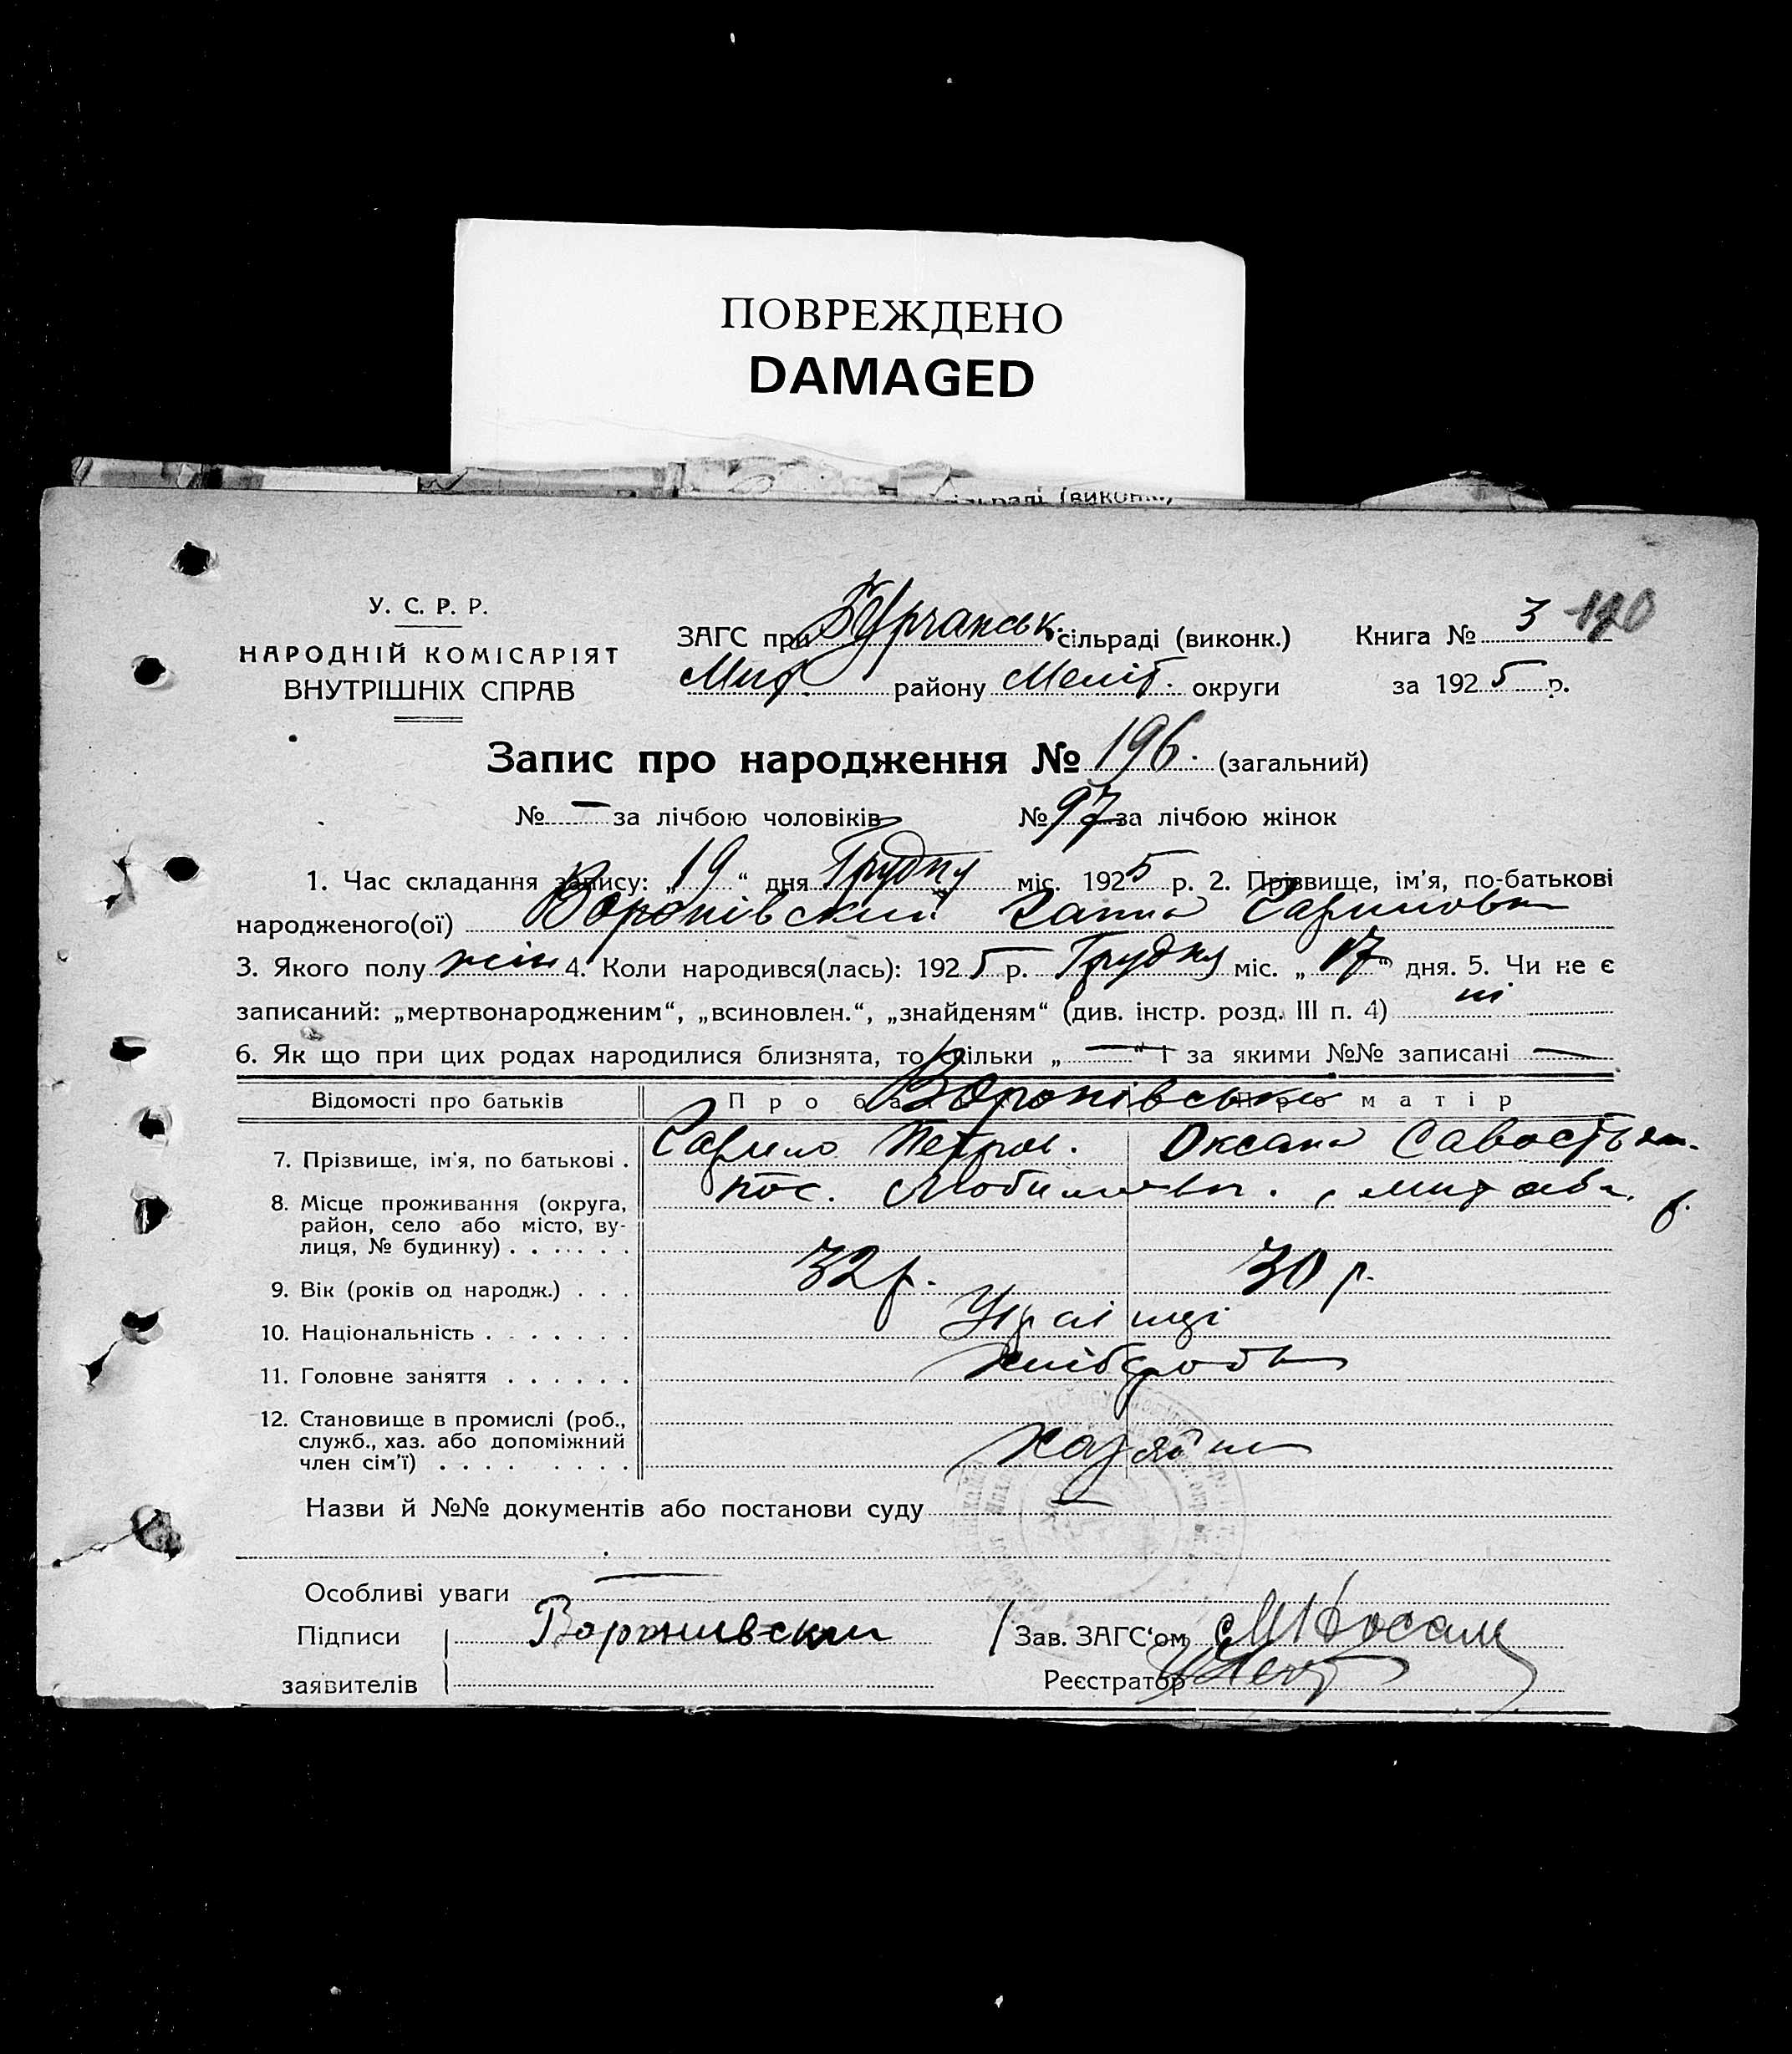 ПОВРЕЖДЕНО
DAMAGED
сільраді (виконк.)
У. С. Р. Р.
НАРОДНІЙ КОМІСАРІЯТ
ВНУТРІШНІХ СПРАВ
ЗАГС при Бурчанськ. сільраді (виконк.) Книга № 3 190
Мих. району Меліт. округи за 1925 р.
Запис про народження № 196. (загальний)
№ — за лічбою чоловіків № 97 за лічбою жінок
1. Час складання запису: „19“ дня Грудня міс. 1925 р. 2. Прізвище, ім'я, по-батькові
народженого(ої) Воронівський Ганна Гариловна
3. Якого полу жін 4. Коли народився(лась): 1925 р. Грудня міс. „17“ дня. 5. Чи не є
записаний: „мертвонародженим“, „всиновлен.“, „знайденям“ (див. інстр. розд. III п. 4) ні
6. Як що при цих родах народилися близнята, то скільки „—“ і за якими №№ записані —
Відомості про батьків Про батька Про матір
Воронівські
7. Прізвище, ім'я, по батькові . Гарило Петров. Оксана Савостьян.
8. Місце проживання (округа, район, село або місто, вулиця, № будинку) . . . . . . пос.
9. Вік (років од народж.) . . . 32 р. 30 р.
10. Національність . . . . . . . Українці
11. Головне заняття . . . . . . хлібороби
12. Становище в промислі (роб., служб., хаз. або допоміжний член сім'ї) . . . . . . . . Хазяїни
Назви й №№ документів або постанови суду —
Особливі уваги —
Підписи Вороновский Зав. ЗАГС'ом
заявителів Реєстратор